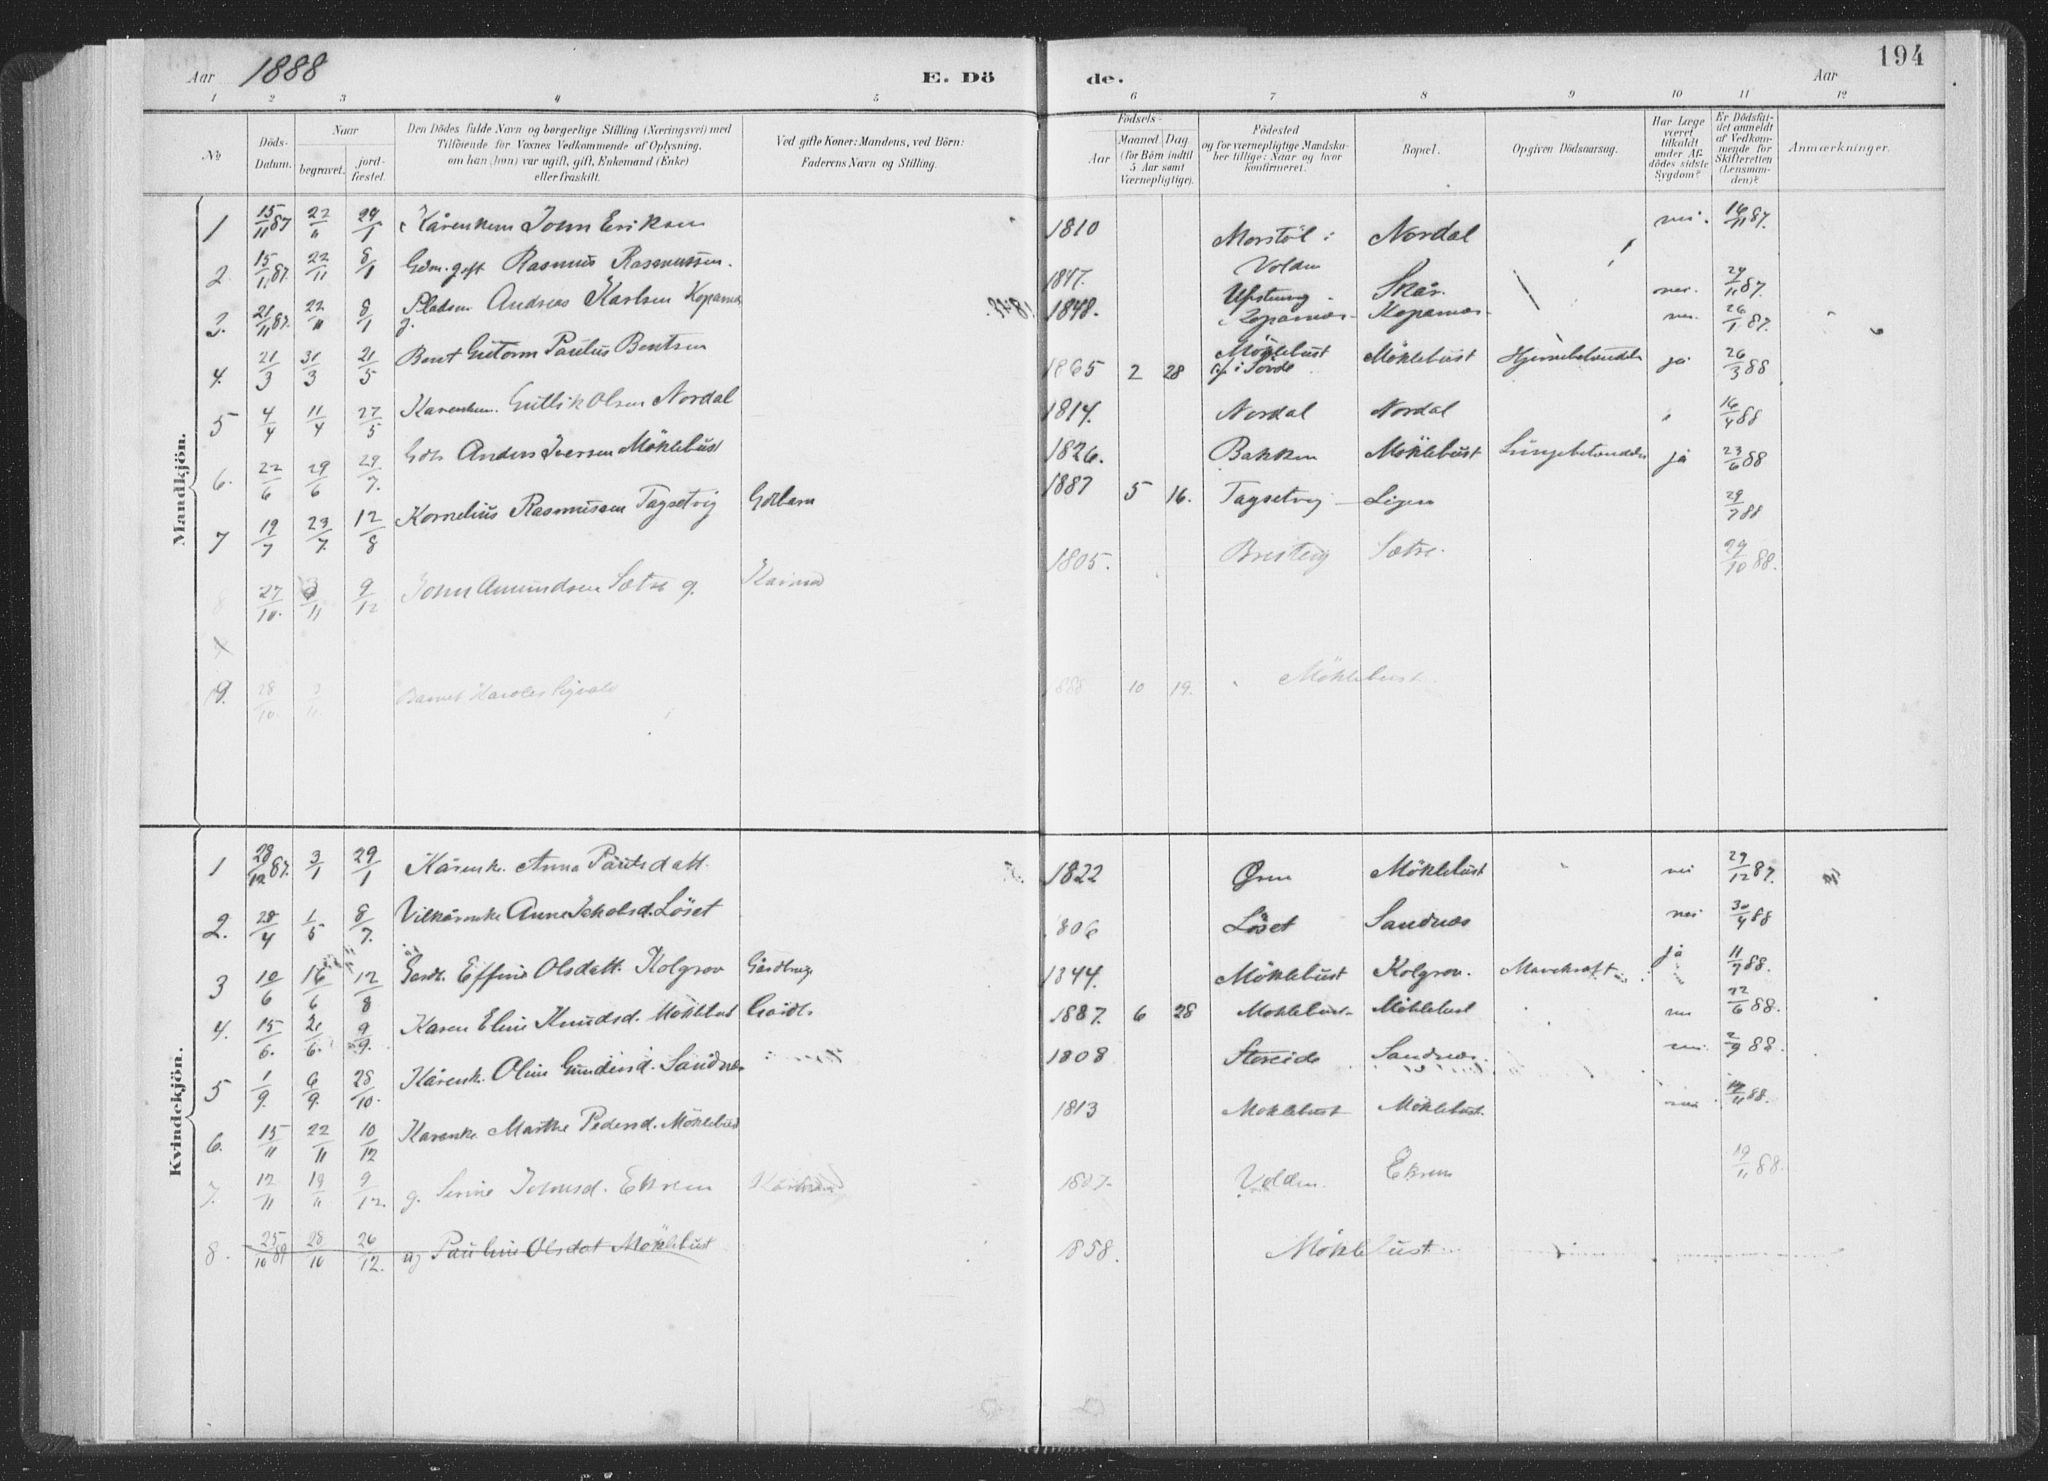 194
Aar 1888 E. Dö de. Aar
1 2 3 4 5 6 7 8 9 10 11 12
No
Döds-Datum.
Naar
begravet.
jord-fæstet.
Den Dödes fulde Navn og borgerlige Stilling (Næringsvei) med
Tilföiende for Voxnes Vedkommende af Oplysning,
om han (hun) var ugift, gift, Enkemand (Enke)
eller fraskilt.
Ved gifte Koner: Mandens, ved Börn:
Faderens Navn og Stilling.
Födsels-
Aar
Maaned
Dag
(for Börn indtil
5 Aar samt
Værnepligtige).
Födested
og for værnepligtige Mandska-
ber tillige: Naar og hvor
konfirmeret.
Bopæl.
Opgiven Dödsaarsag.
Har Læge
været
tilkaldt
under Af-
dödes sidste
Sygdom?
Er Dödsfal-
det anmeldt
af Vedkom-
mende for
Skifteretten
(Lensman-
den)?
Anmærkninger.
Mandkjön.
1 15/11 87 22/11 29/1 Kårenkem John Eriksen 1810 Morstöl i Volden Nordal nei. 16/11 87.
2. 15/11 87. 22/11 8/1 Gdm. gift Rasmus Rasmussen. 1847. Skår. nei. 29/11 87.
3. 21/11 87. 22/11 8/1 Pladsm Andreas Karlsen Kopanes g. 1848. Kopanes Kopanes nei 26/1 87.
4. 21/3 31/3 21/5 Bent Gutorm Paulus Bentsen 1865 2 28 Möklebust Möklebust Hjernebetændelse ja 26/3 88
5 4/4 11/4 27/5 Karenkem. Gullik Olsen Nordal 1814. Nordal Nordal 16/4 88
6. 22/6 29/6 29/7. Anders Iversen Möklebust 1826. Bakken Möklebust Lungebetændelse ja 23/6 88
7 19/7 23/7. 12/8 Kornelius Rasmussen Tagsetvig 1887 5 16. Tagsetvig 29/7 88
8 27/10. 11 9/12 John Amundsen Sætre g. 1805. Bresteig Sætre. 29/10 88.
9. 28/10. Barnet 888 10 19. Möklebust.
Kvindekjön.
1 28/12 87. 3/1 29/1 Kårenke. Anna Paulsdatt. 1822 Øren Möklebust nei 29/12 87.
2. 28/4 1/5 8/7. Vilkårenke Anne Jakobsd. Löset 806 Löset Sandnæs nei 30/4 88
3 10/6 16/6 12/8 Olsdatt. Kolgrov 1844. Möklebust Kolgrov. Mavekræft ja 11/7 88.
4. 15/6. 21/6. 9/9. Karen Eline Knudsd. Möklebust 1887. 6 28 Moklebust Möklebust 22/6 88.
5 1/9. 6/9. 28/10. Kårenk. Oline Sandnæs 1808 Storeide Sandnæs. 2/9 88
6. 15/11 22/11 10/12 Karenke Marthe Pedersd. Möklebust 1813 Moklebust Möklebust. nei 88.
7. 12/11 19/11 9/12. g. Serine Johnsd. Ekrem Volden Ekrem 19/11 88.
8. 25/10 28/10 26/12. ug Pauline Olsdat Möklebust 1858. Möklebust